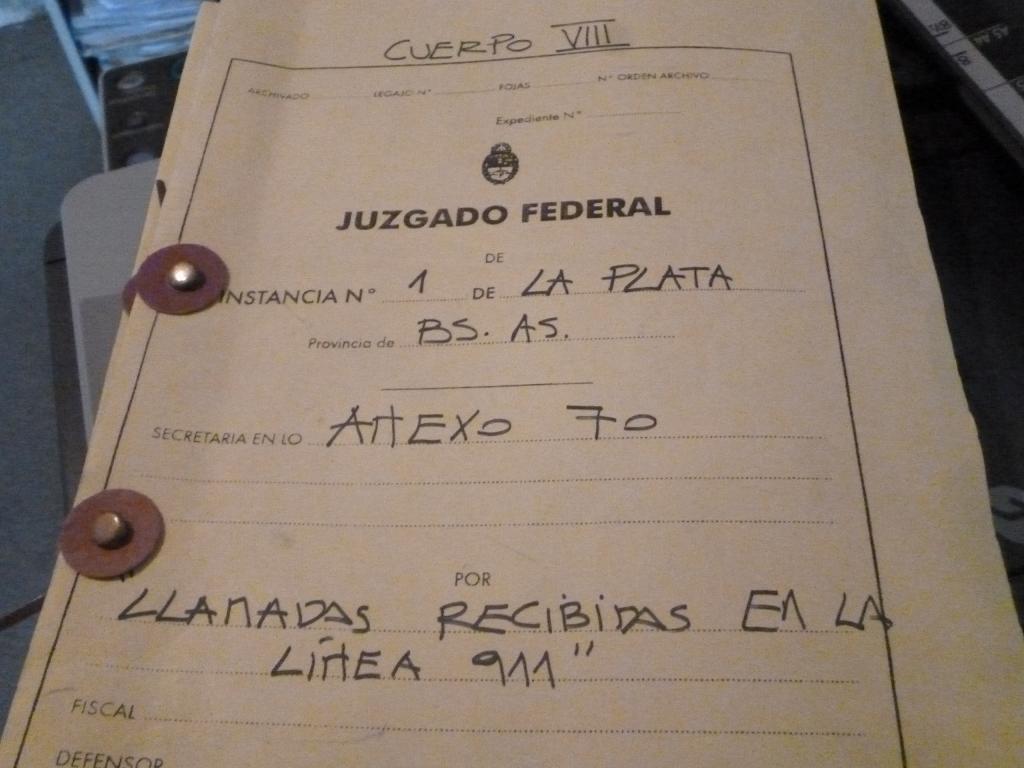 CUERPO VIII
ARCHIVADO LEGAJO N° FOJAS N° ORDEN ARCHIVO
Expediente N°
JUZGADO FEDERAL
DE
INSTANCIA N° 1 DE LA PLATA
Provincia de BS. AS.
SECRETARIA EN LO ANEXO 70
POR
"LLAMADAS RECIBIDAS EN LA
LÍNEA 911"
FISCAL
DEFENSOR